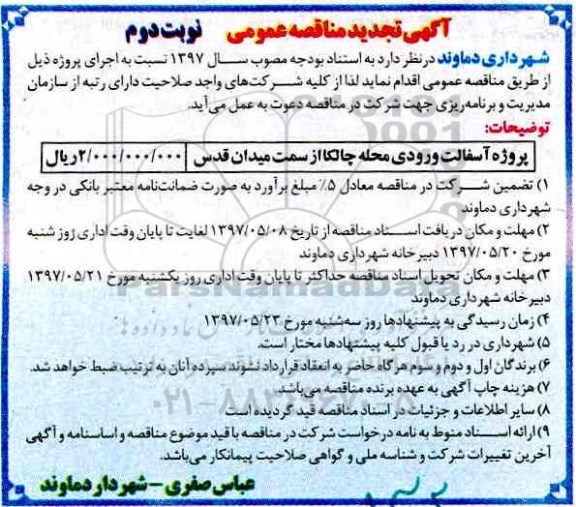 آگهی تجدید مناقصه عمومی نوبت دوم
شهرداری دماوند در نظر دارد به استناد بودجه مصوب سال ۱۳۹۷ نسبت به اجرای پروژه ذیل
از طریق مناقصه عمومی اقدام نماید لذا از کلیه شرکت‌های واجد صلاحیت دارای رتبه از سازمان
مدیریت و برنامه‌ریزی جهت شرکت در مناقصه دعوت به عمل می‌آید.
توضیحات:
پروژه آسفالت ورودی محله چالکا از سمت میدان قدس ۲/۰۰۰/۰۰۰/۰۰۰ ریال
۱) تضمین شرکت در مناقصه معادل ۵٪ مبلغ برآورد به صورت ضمانت‌نامه معتبر بانکی در وجه
شهرداری دماوند
۲) مهلت و مکان دریافت اسناد مناقصه از تاریخ ۱۳۹۷/۰۵/۰۸ لغایت تا پایان وقت اداری روز شنبه
مورخ ۱۳۹۷/۰۵/۲۰ دبیرخانه شهرداری دماوند
۳) مهلت و مکان تحویل اسناد مناقصه حداکثر تا پایان وقت اداری روز یکشنبه مورخ ۱۳۹۷/۰۵/۲۱
دبیرخانه شهرداری دماوند
۴) زمان رسیدگی به پیشنهادها روز سه‌شنبه مورخ ۱۳۹۷/۰۵/۲۳
۵) شهرداری در رد یا قبول کلیه پیشنهادها مختار است.
۶) برندگان اول و دوم و سوم هرگاه حاضر به انعقاد قرارداد نشوند سپرده آنان به ترتیب ضبط خواهد شد.
۷) هزینه چاپ آگهی به عهده برنده مناقصه می‌باشد.
۸) سایر اطلاعات و جزئیات در اسناد مناقصه قید گردیده است
۹) ارائه اسناد منوط به نامه درخواست شرکت در مناقصه با قید موضوع مناقصه و اساسنامه و آگهی
آخرین تغییرات شرکت و شناسه ملی و گواهی صلاحیت پیمانکار می‌باشد.
عباس صفری - شهردار دماوند
ParsNamadData